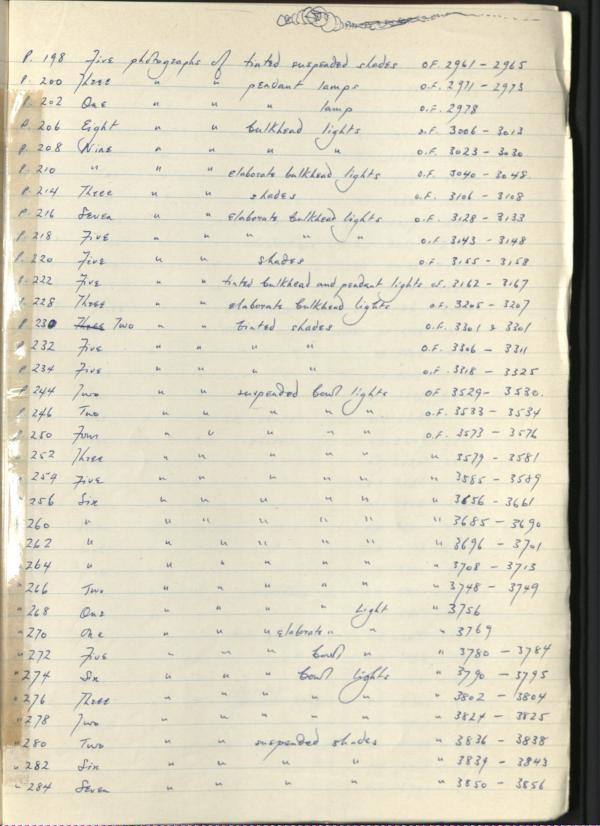 P. 198 Five photographs of tinted suspended shades O.F. 2961 - 2965
P. 200 Three " " pendant lamps O.F. 2971 - 2973
P. 202 One " " " lamp O.F. 2978
P. 206 Eight " " bulkhead lights O.F. 3006 - 3013
P. 208 Nine " " " " O.F. 3023 - 3030
P. 210 " " " elaborate bulkhead lights O.F. 3040 - 3048
P. 214 Three " " shades O.F. 3106 - 3108
P. 216 Seven " " elaborate bulkhead lights O.F. 3128 - 3133
P. 218 Five " " " " " O.F. 3143 - 3148
P. 220 Five " " shades O.F. 3155 - 3158
P. 222 Five " " tinted bulkhead and pendant lights O.F. 3162 - 3167
P. 228 Three " " elaborate bulkhead lights O.F. 3205 - 3207
P. 230 Three Two " " tinted shades O.F. 3301 & 3301
P. 232 Five " " " " O.F. 3306 - 3311
P. 234 Five " " " " O.F. 3318 - 3325
P. 244 Two " " suspended bowl lights O.F. 3529 - 3530.
P. 246 Two " " " " " O.F. 3533 - 3534
P. 250 Four " " " " " O.F. 3573 - 3576
" 252 Three " " " " " " 3579 - 3581
" 254 Five " " " " " " 3585 - 3589
" 256 Six " " " " " " 3656 - 3661
" 260 " " " " " " " 3685 - 3690
" 262 " " " " " " " 3696 - 3701
" 264 " " " " " " " 3708 - 3713
" 266 Two " " " " " " 3748 - 3749
" 268 One " " " " light " 3756
" 270 One " " " elaborate " " " 3769
" 272 Five " " " bowl " " 3780 - 3784
" 274 Six " " " bowl lights " 3790 - 3795
" 276 Three " " " " " " 3802 - 3804
" 278 Two " " " " " " 3824 - 3825
" 280 Two " " suspended shades " 3836 - 3838
" 282 Six " " " " " 3839 - 3843
" 284 Seven " " " " " 3850 - 3856